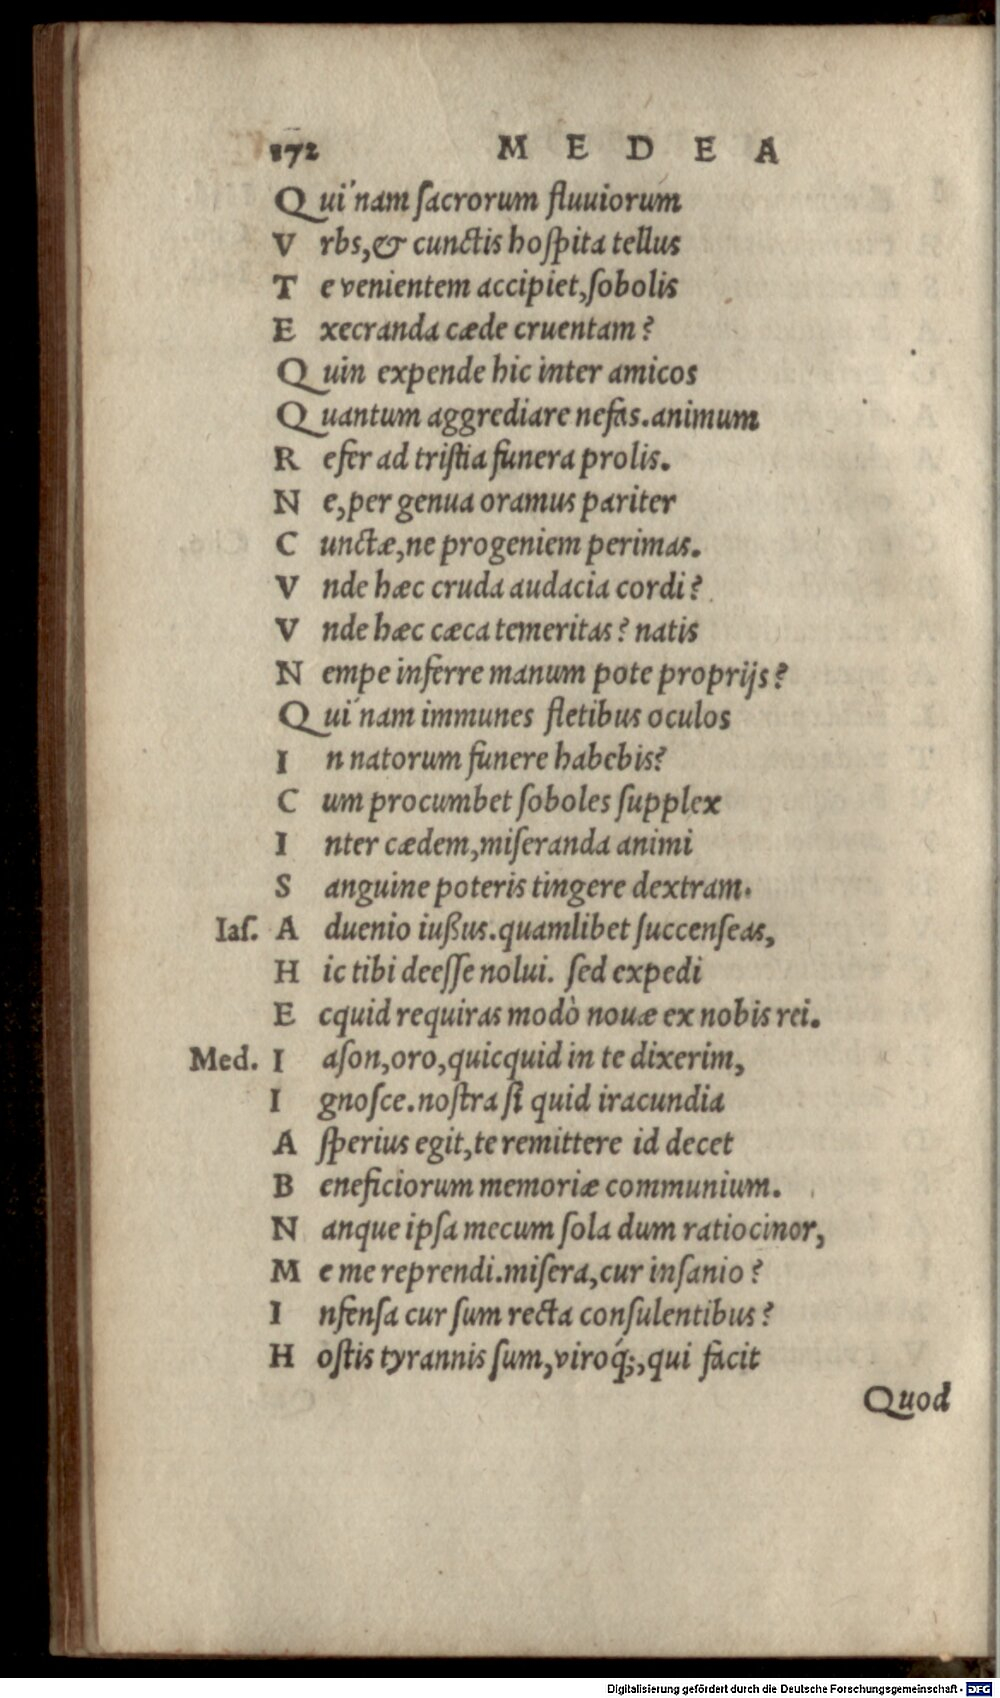 172 MEDEA
Qui'nam ſacrorum fluuiorum
Vrbs, & cunctis hoſpita tellus
Te venientem accipiet, ſobolis
Execranda cæde cruentam?
Quin expende hic inter amicos
Quantum aggrediare nefas. animum
Refer ad triſtia funera prolis.
Ne, per genua oramus pariter
Cunctæ, ne progeniem perimas.
Vnde hæc cruda audacia cordi?
Vnde hæc cæca temeritas? natis
Nempe inferre manum pote proprijs?
Qui'nam immunes fletibus oculos
In natorum funere habebis?
Cum procumbet ſoboles ſupplex
Inter cædem, miſeranda animi
Sanguine poteris tingere dextram.
Iaſ. Aduenio iußus. quamlibet ſuccenſeas,
Hic tibi deeſſe nolui. ſed expedi
Ecquid requiras modò nouæ ex nobis rei.
Med. Iaſon, oro, quicquid in te dixerim,
Ignoſce. noſtra ſi quid iracundia
Aſperius egit, te remittere id decet
Beneficiorum memoriæ communium.
Nanque ipſa mecum ſola dum ratiocinor,
Me me reprendi. miſera, cur inſanio?
Infenſa cur ſum recta conſulentibus?
Hoſtis tyrannis ſum, viroq́;, qui facit
Quod
Digitalisierung gefördert durch die Deutsche Forschungsgemeinschaft - DFG